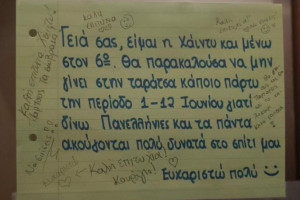 Γειά σας, είμαι η Χάιντυ και μένω
στον 6º. Θα παρακαλούσα να μην
γίνει στην ταράτσα κάποιο πάρτυ
την περίοδο 1-12 Ιουνίου γιατί
δίνω Πανελλήνιες και τα πάντα
ακούγονται πολύ δυνατά στο σπίτι μου
Ευχαριστώ πολύ
Καλή επιτυχία!